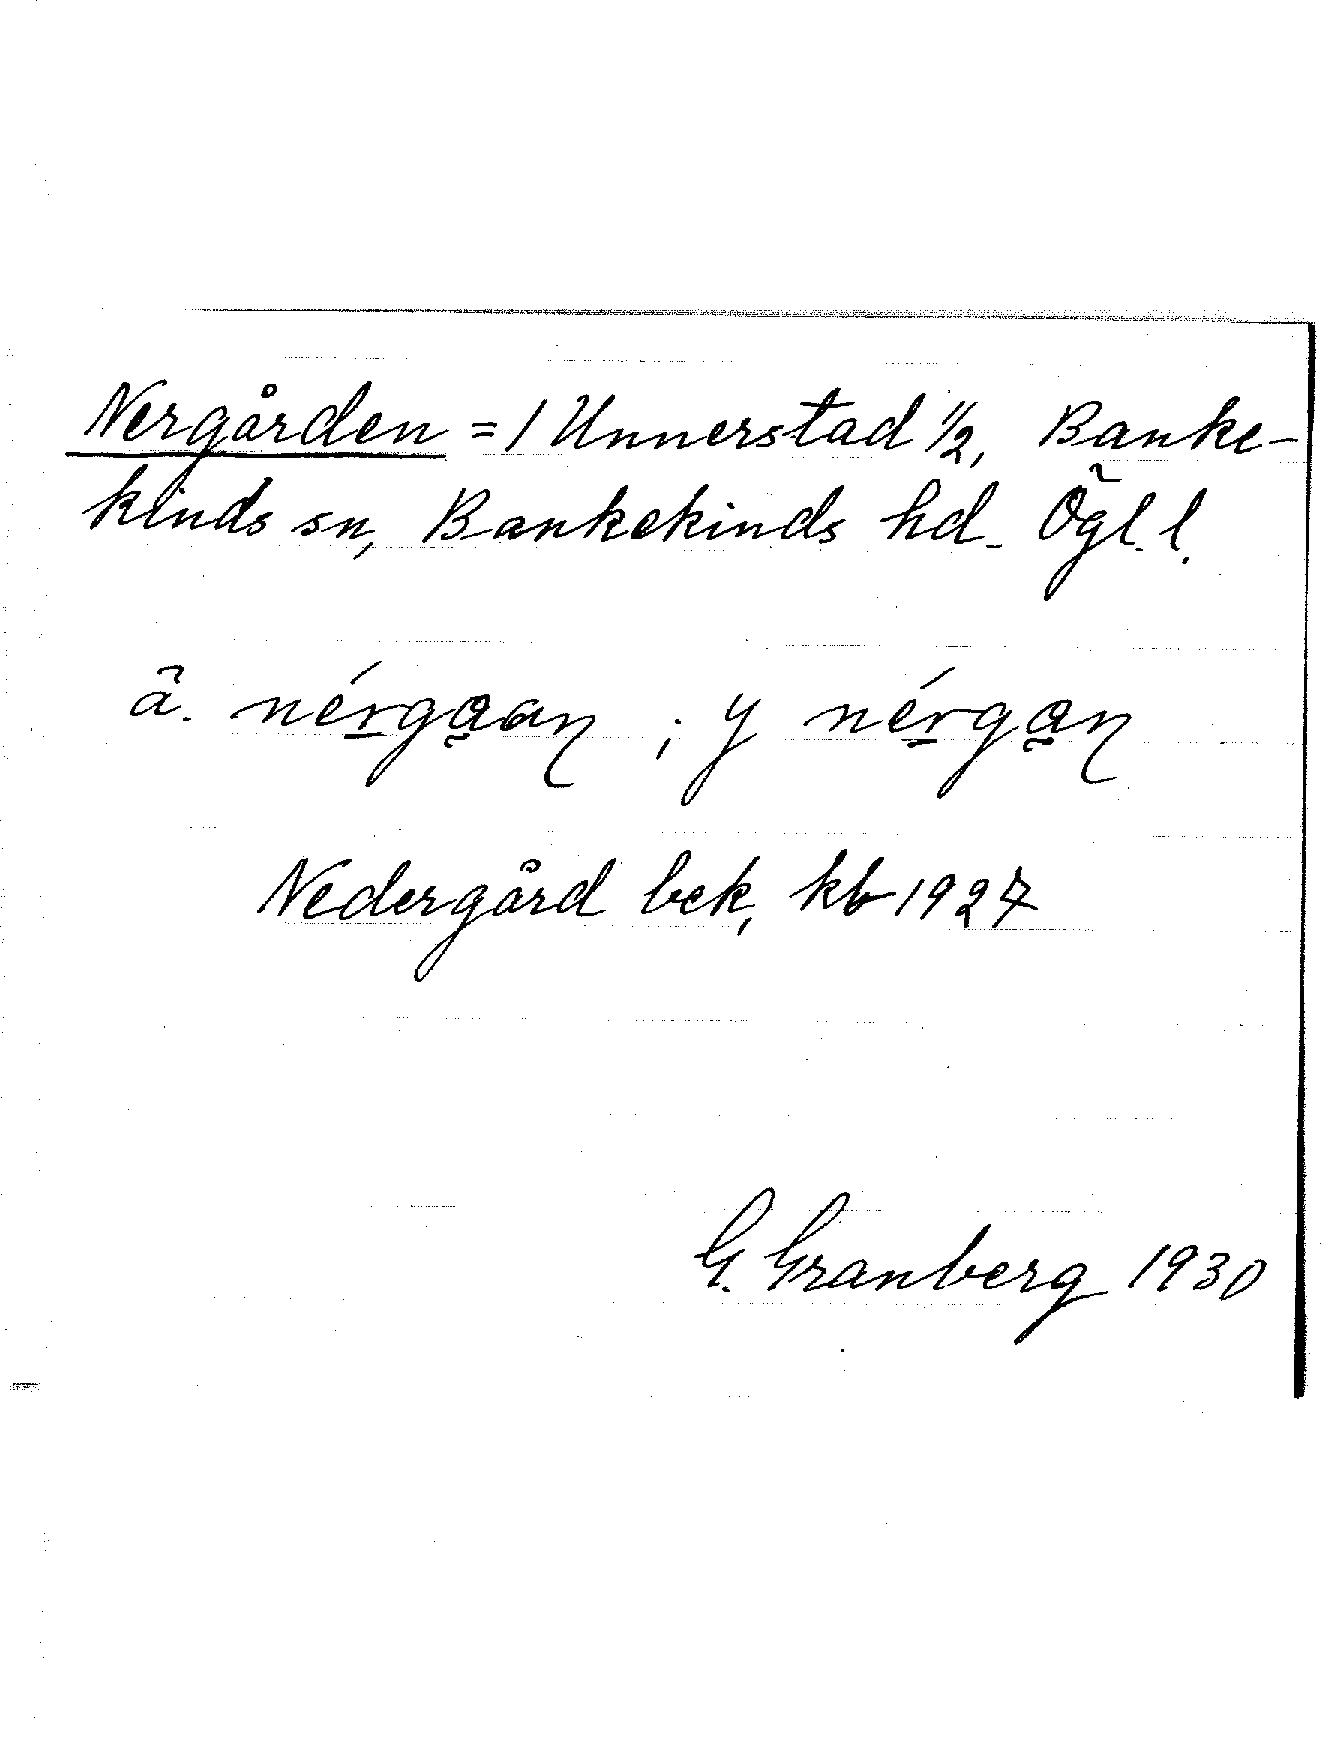 Nergården = 1 Unnerstad 1/2, Banke-
kinds sn, Bankekinds hd. Ögl. l.
ä. nérgaan ; y nérgan
Nedergård bek, kb 1927
G. Granberg 1930